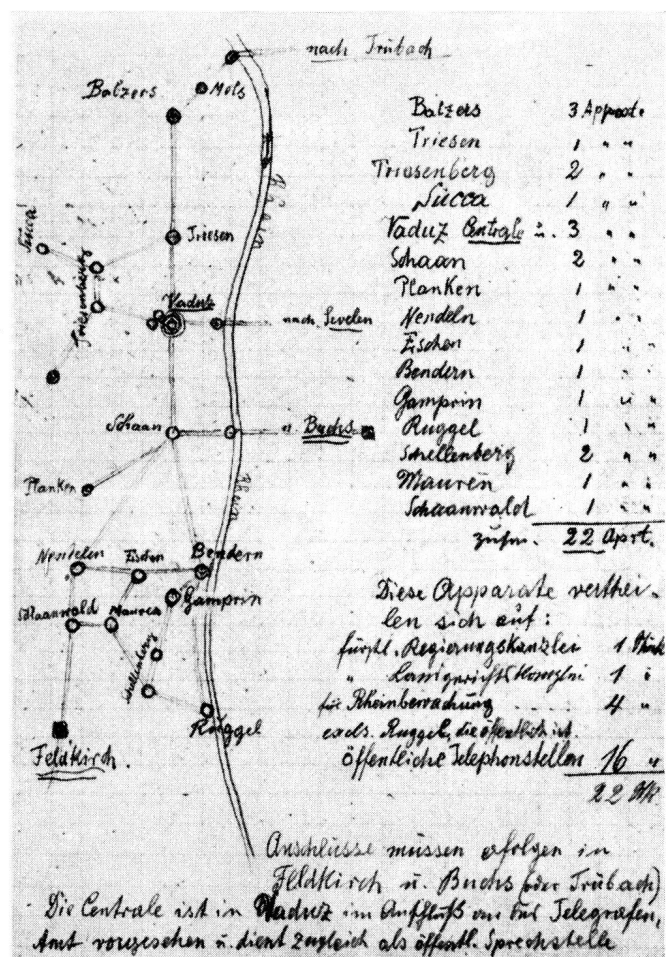 nach Trübach
Balzers
Mels
Rhein
Triesen
Sücca
Triesenberg
Vaduz
nach Sevelen
Schaan
n. Buchs
Rhein
Planken
Nendelen
Eschen
Bendern
Gamprin
Schaanwald
Mauren
Schellenberg
Ruggel
Feldkirch.
Balzers 3 Apparate
Triesen 1 " "
Triesenberg 2 " "
Sücca 1 " "
Vaduz Centrale u. 3 " "
Schaan 2 " "
Planken 1 " "
Nendeln 1 " "
Eschen 1 " "
Bendern 1 " "
Gamprin 1 " "
Ruggel 1 " "
Schellenberg 2 " "
Mauren 1 " "
Schaanwald 1 " "
zusm. 22 Aprt.
Diese Apparate verthei-
len sich auf:
fürstl. Regierungskanzlei 1 Stück
" Landgerichts 1 "
für Rheinbewachung 4 "
excls. Ruggel, die öffentlich ist
öffentliche Telephonstellen 16 "
22
Anschlüsse müssen erfolgen in
Feldkirch u. Buchs (oder Trübach)
Die Centrale ist in Vaduz im Anschluß an das Telegrafen,
Amt vorgesehen u. dient zugleich als öffentl. Sprechstelle